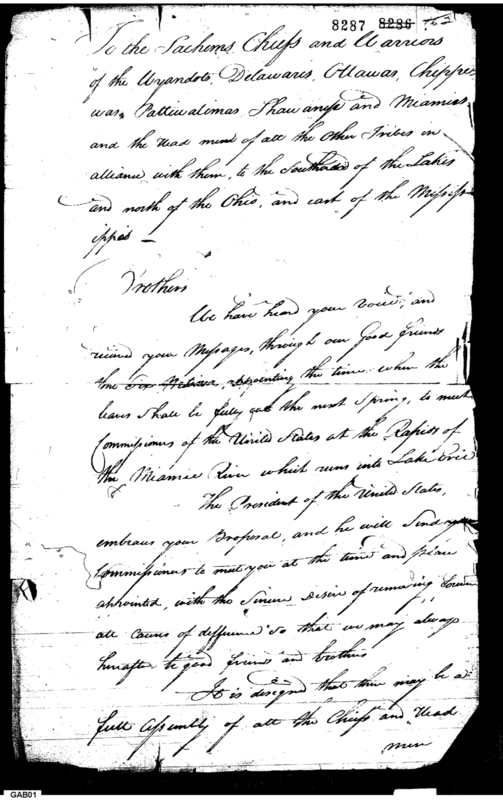 8287 8286 763
To the Sachems Chiefs and Warriors
of the Wyandots, Delawares, Ottawas, Chippe-
was, Pattiwatimas, Shawanese and Miamies
and the Head men of all the Other Tribes in
alliance with them, to the Southard of the Lakes
and north of the Ohio, and east of the Mississ-
ippis —
Brothers
We have heard your voice, and
recived your Messages, through our Good friends
the Six Nations, appointing the time when the
leaves shall be fully out the next Spring, to meet
Commissioners of the United States at the Rapids of
the Miamie River which runs into Lake Erie
The President of the United States,
embraces your Proposal, and he will Send
Commissioners to meet you at the time and place
appointed, with the Sincere Desire of removing
all causes of difference so that we may always
hereafter be good friends and brothers
It is designed that there may be a
full Assembly of all the Chiefs and Head
men
GAB01